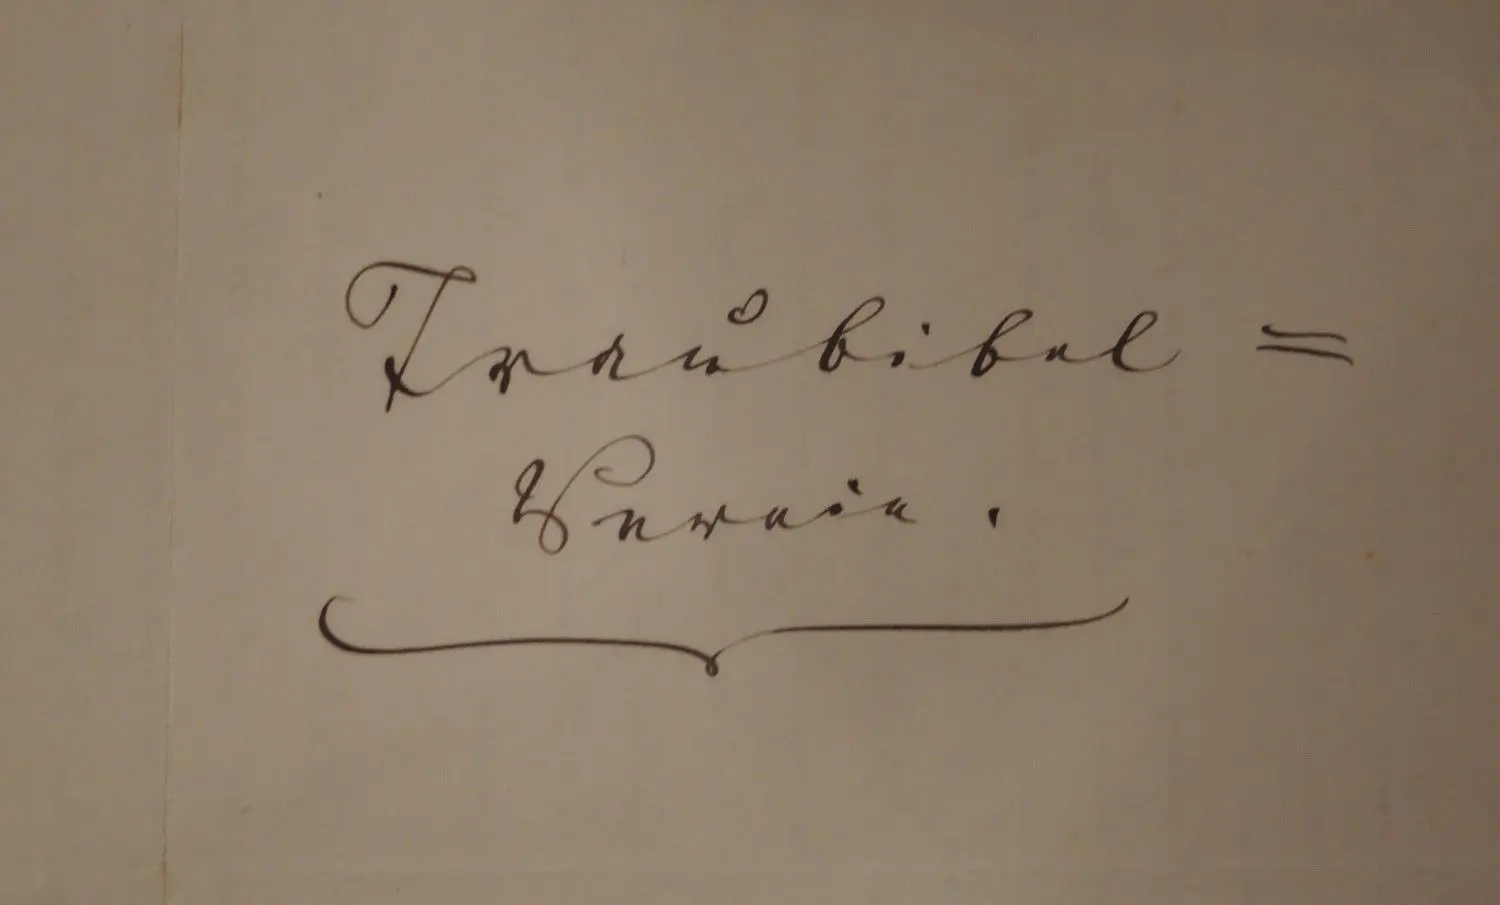 Traubibel=
Verein.